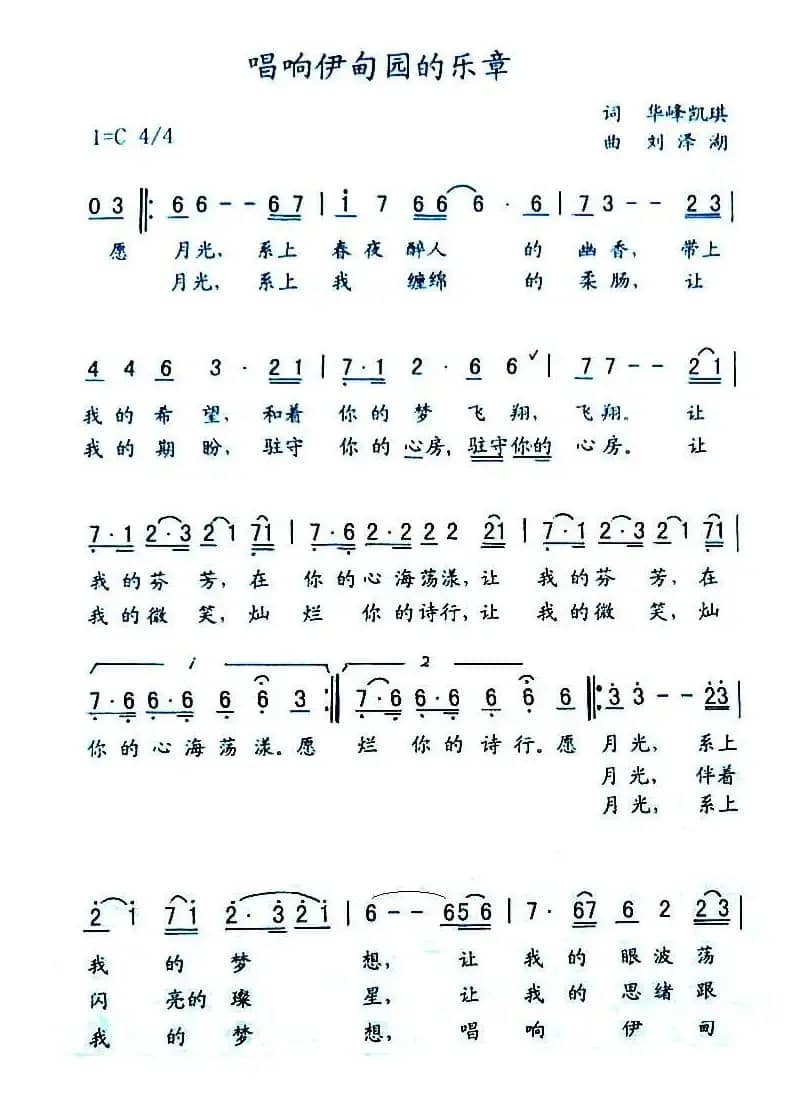 唱响伊甸园的乐章
词 华峰凯琪
1=C 4/4
曲 刘泽湖
0 3 ‖: 6 6 - - 6 7 | i 7 6 6 6 · 6 | 7 3 - - 2 3 |
愿 月光，系上春夜醉人 的幽香，带上
月光，系上我 缠绵 的柔肠，让
4 4 6 3 · 2 1 | 7 · 1 2 · 6 6 ✓ | 7 7 - - 2 1 |
我的希望，和着你的梦飞翔，飞翔。让
我的期盼，驻守你的心房，驻守你的心房。让
7 · 1 2 · 3 2 1 7 1 | 7 · 6 2 · 2 2 2 2 1 | 7 · 1 2 · 3 2 1 7 1 |
我的芬芳，在你的心海荡漾，让我的芬芳，在
我的微笑，灿烂你的诗行，让我的微笑，灿
1 2
7 · 6 6 · 6 6 6 3 :‖ 7 · 6 6 · 6 6 6 6 ‖: 3 3 - - 2 3 |
你的心海荡漾。愿烂你的诗行。愿月光，系上
月光，伴着
月光，系上
2 1 7 1 2 · 3 2 1 | 6 - - 6 5 6 | 7 · 6 7 6 2 2 3 |
我的梦想，让我的眼波荡
闪亮的璨星，让我的思绪跟
我的梦想，唱响伊甸